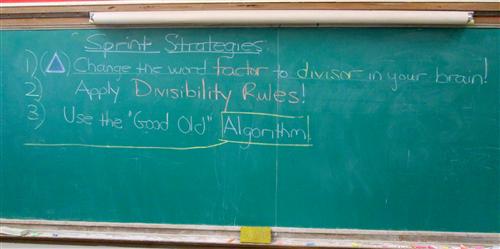 Sprint Strategies
1) Change the word factor to divisor in your brain!
2) Apply Divisibility Rules!
3) Use the "Good Old" Algorithm!